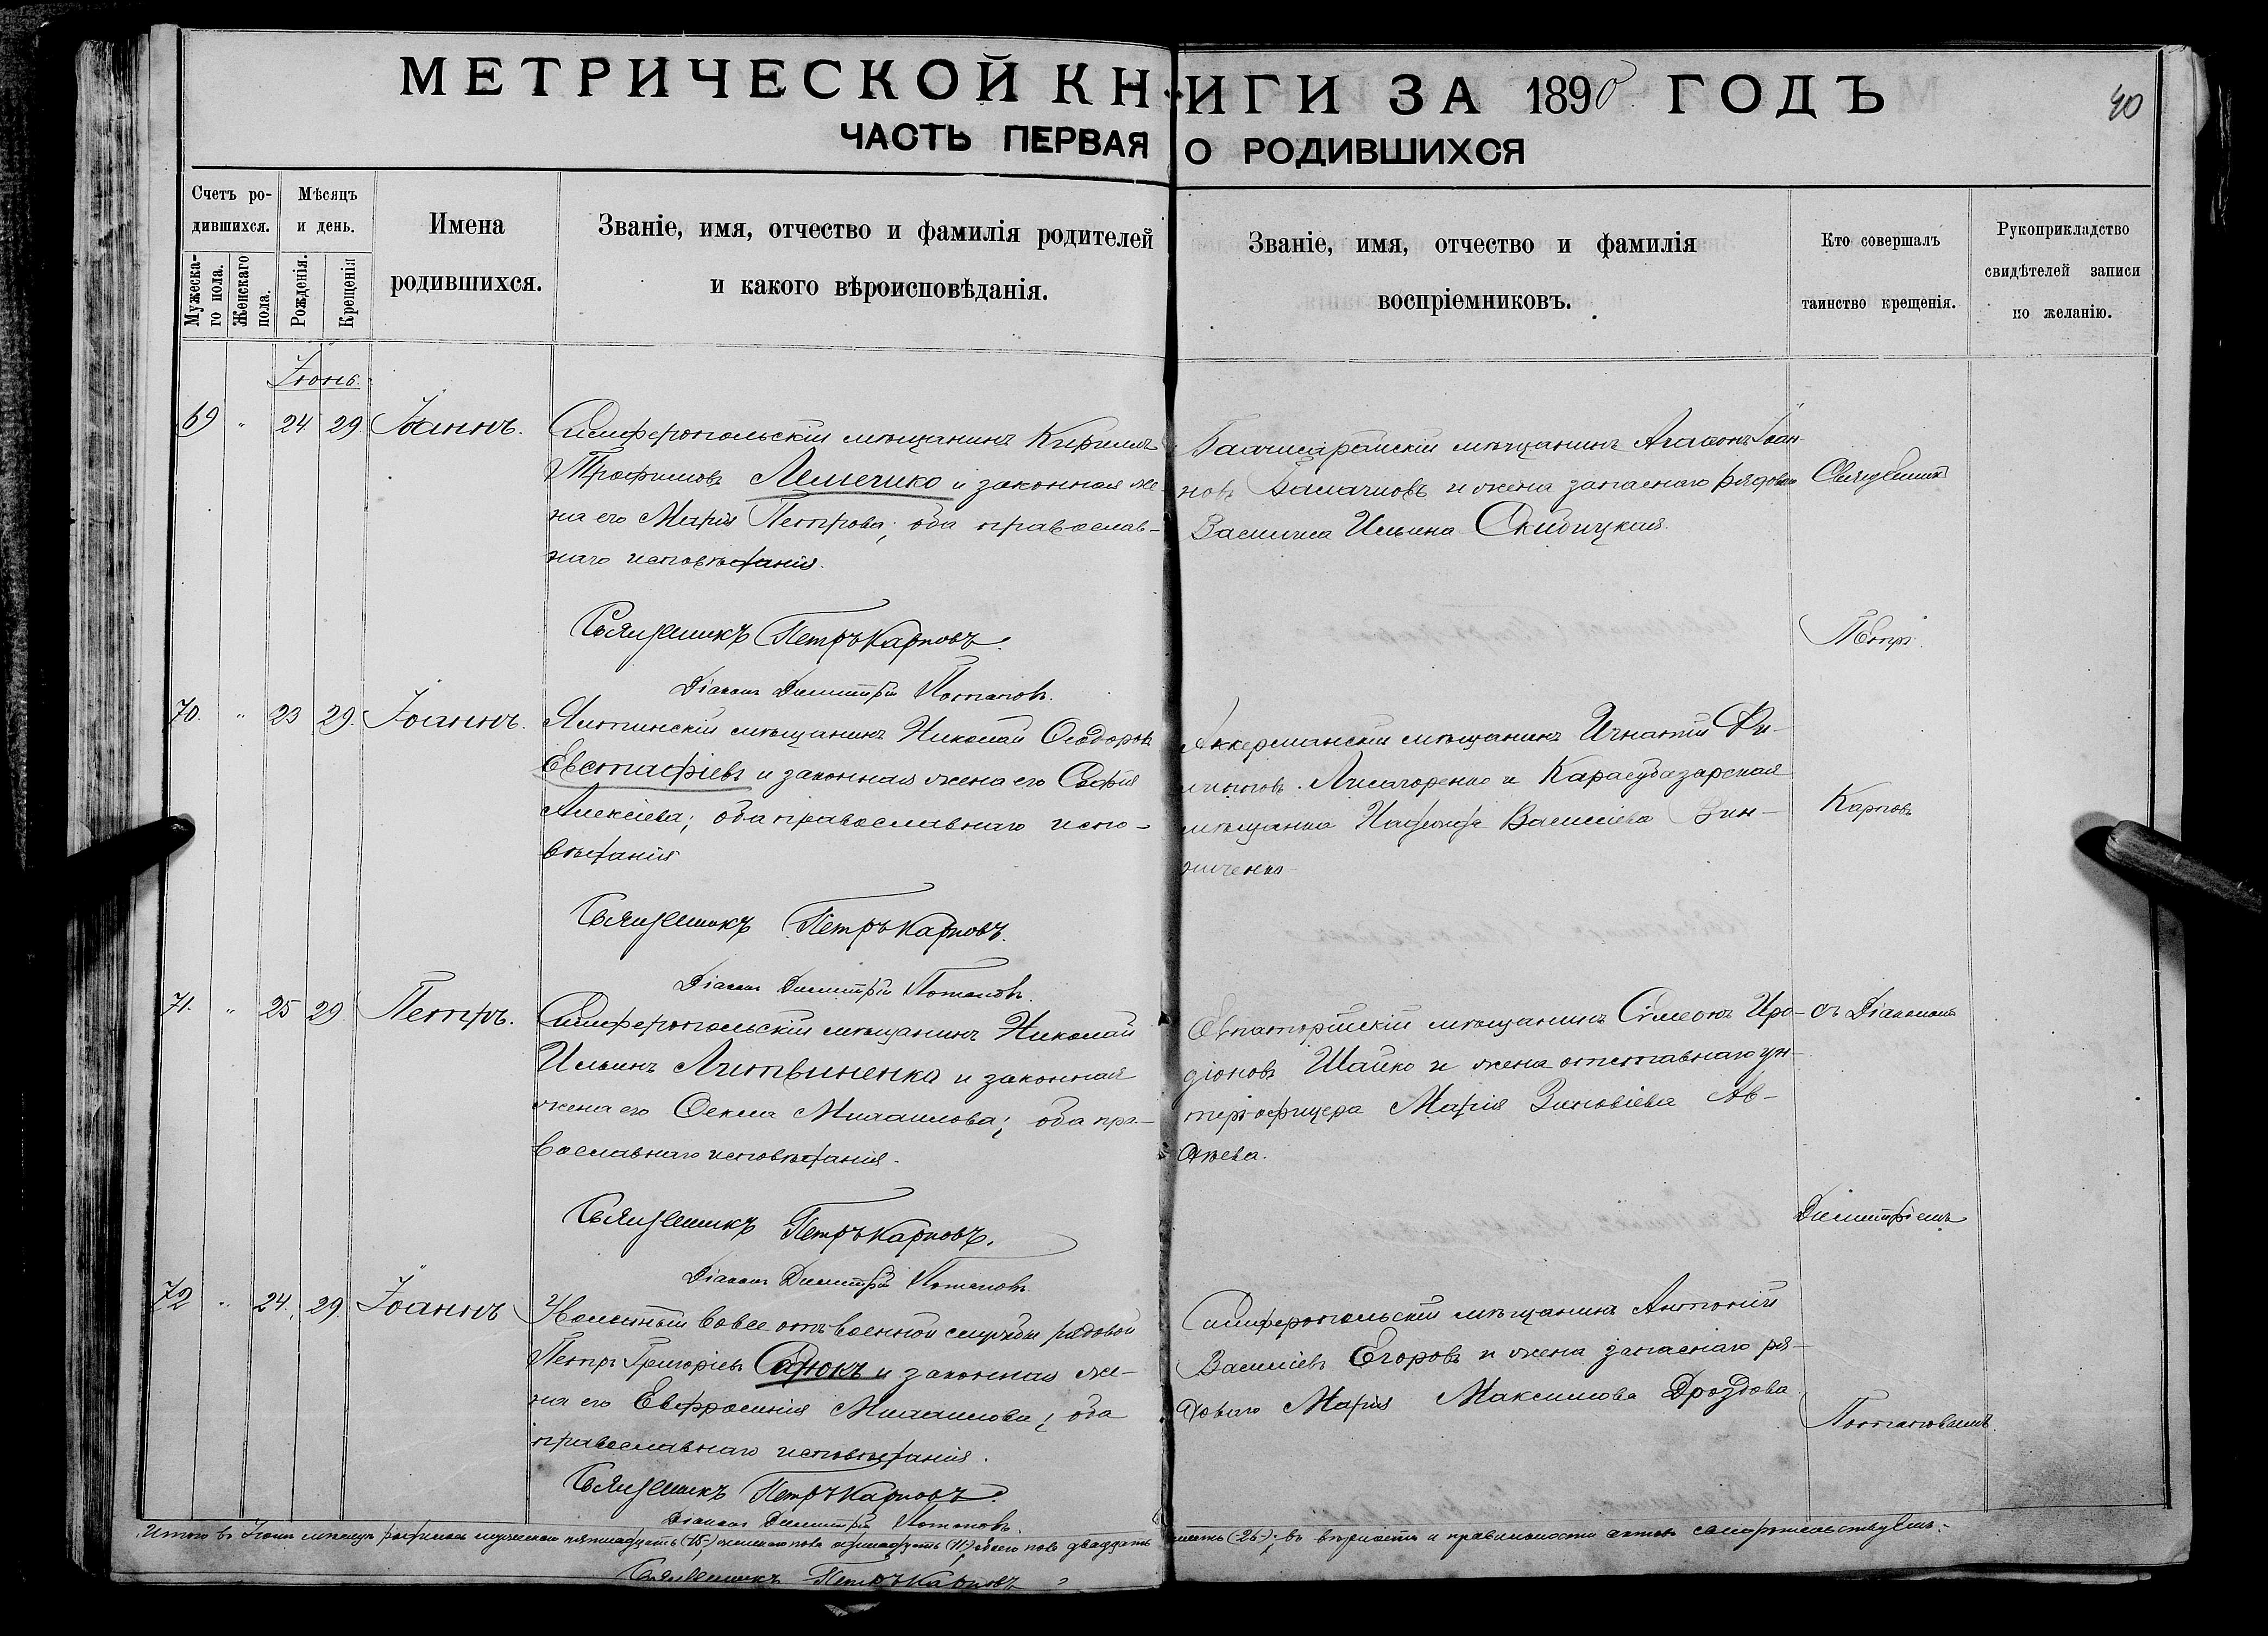 МЕТРИЧЕСКОЙ КНИГИ ЗА 1890 ГОДЪ
40
ЧАСТЬ ПЕРВАЯ О РОДИВШИХСЯ
Счетъ ро-
дившихся.
Мужеска-
го пола.
Женскаго
пола.
Мѣсяцъ
и день.
Рожденія.
Крещенія
Имена
родившихся.
Званіе, имя, отчество и фамилія родителей
и какого вѣроисповѣданія.
Званіе, имя, отчество и фамилія
воспріемниковъ.
Кто совершалъ
таинство крещенія.
Рукоприкладство
свидѣтелей записи
по желанію.
Іюнь.
69 " 24 29. Іоаннъ.
Симферопольскій мѣщанинъ Кириллъ
Трофимовъ и законная же-
на его Марія Петрова; оба православ-
наго исповѣданія.
Священникъ Петръ Карповъ.
Діаконъ Димитрій Потаповъ.
Бахчисарайскій мѣщанинъ Агаѳонъ Іоан-
новъ и жена запаснаго рядового
Василиса Ильина Скибицкая.
70. " 23 29. Іоаннъ.
Ялтинскій мѣщанинъ Николай Ѳеодоровъ
Евстафіевъ и законная жена его Софія
Алексіева; оба православнаго испо-
вѣданія
Священникъ Петръ Карповъ.
Діаконъ Димитрій Потаповъ.
Аккерманскій мѣщанинъ Игнатій Фи-
липповъ Лисагоренко и Карасубазарская
мѣщанка Надежда Василіева Вин-
ниченко
71. " 25 29 Петръ.
Симферопольскій мѣщанинъ Николай
Ильинъ Литвиненко и законная
жена его Ѳекла Михаилова; оба пра-
вославнаго исповѣданія.
Священникъ Петръ Карповъ.
Діаконъ Димитрій Потаповъ
Евпаторійскій мѣщанинъ Сѵмеонъ Иро-
діоновъ Шайко и жена отставнаго ун-
теръ-офицера Марія Зиновіева Ав-
дѣева.
72 " 24. 29. Іоаннъ
Уволенный вовсе отъ военной службы рядовой
Петръ Григоріевъ и законная же-
на его Евфросинія Михаилова; оба
православнаго исповѣданія.
Священникъ Петръ Карповъ.
Діаконъ Димитрій Потаповъ.
Симферопольскій мѣщанинъ Антоній
Василіевъ Егоровъ и жена запаснаго ря-
доваго Марія Максимова Дроздова
Священникъ
Петръ
Карповъ
съ Діакономъ
Димитріемъ
Потаповымъ.
Итого въ Іюнѣ мѣсяцѣ родилось мужескаго пятнадцать (15), женскаго пола одинадцать (11) обоего пола двадцать шесть (26); въ вѣрности и правильности актовъ свидѣтельствуемъ:
Священникъ Петръ Карповъ